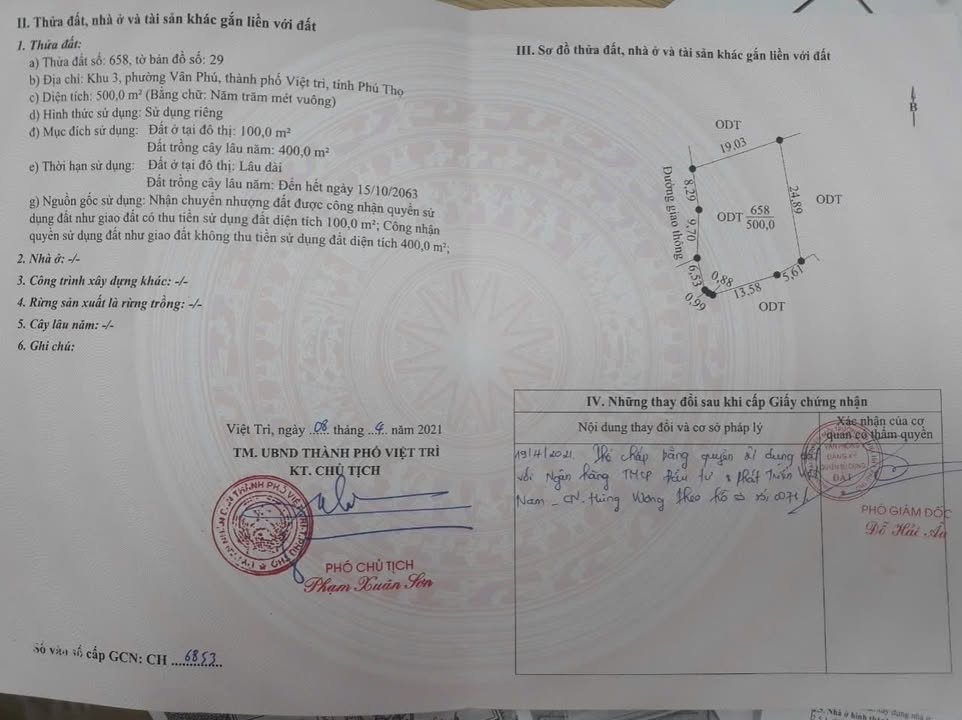 II. Thửa đất, nhà ở và tài sản khác gắn liền với đất
1. Thửa đất:
a) Thửa đất số: 658, tờ bản đồ số: 29
b) Địa chỉ: Khu 3, phường Vân Phú, thành phố Việt trì, tỉnh Phú Thọ
c) Diện tích: 500,0 m² (Bằng chữ: Năm trăm mét vuông)
d) Hình thức sử dụng: Sử dụng riêng
đ) Mục đích sử dụng: Đất ở tại đô thị: 100,0 m²
Đất trồng cây lâu năm: 400,0 m²
e) Thời hạn sử dụng: Đất ở tại đô thị: Lâu dài
Đất trồng cây lâu năm: Đến hết ngày 15/10/2063
g) Nguồn gốc sử dụng: Nhận chuyển nhượng đất được công nhận quyền sử
dụng đất như giao đất có thu tiền sử dụng đất diện tích 100,0 m²; Công nhận
quyền sử dụng đất như giao đất không thu tiền sử dụng đất diện tích 400,0 m²;
2. Nhà ở: -/-
3. Công trình xây dựng khác: -/-
4. Rừng sản xuất là rừng trồng: -/-
5. Cây lâu năm: -/-
6. Ghi chú:
Việt Trì, ngày 08 tháng 4 năm 2021
TM. UBND THÀNH PHỐ VIỆT TRÌ
KT. CHỦ TỊCH
PHÓ CHỦ TỊCH
Phạm Xuân Sơn
Số vào sổ cấp GCN: CH 6853
III. Sơ đồ thửa đất, nhà ở và tài sản khác gắn liền với đất
B
ODT
19.03
8,29
24,89
ODT
Đường giao thông
9,70
ODT 658
500,0
6,53
0,88
0,99
13.58
5,61
ODT
IV. Những thay đổi sau khi cấp Giấy chứng nhận
Nội dung thay đổi và cơ sở pháp lý
Xác nhận của cơ
quan có thẩm quyền
19/4/2021. Thế chấp bằng quyền sử dụng đất
với Ngân hàng TMCP Đầu tư & Phát Triển Việt
Nam - CN. Hùng Vương theo hồ sơ số: 0071
VĂN PHÒNG
ĐĂNG KÝ
QUYỀN SỬ DỤNG
ĐẤT
PHÓ GIÁM ĐỐC
Đỗ Hải Âu